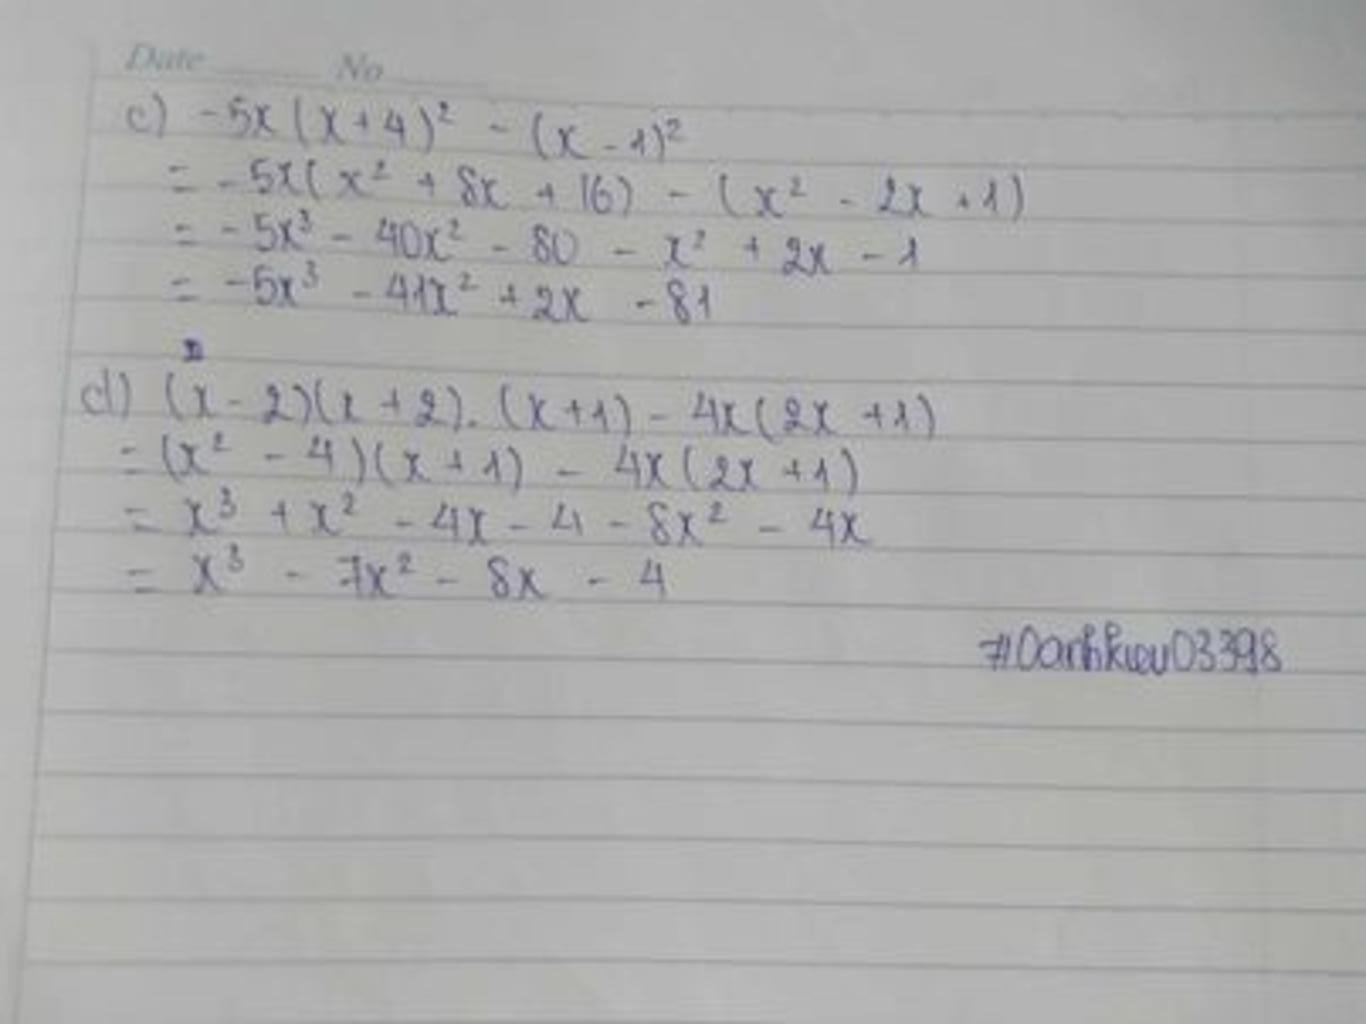 Date No
c) -5x(x+4)² - (x-1)²
= -5x(x² + 8x + 16) - (x² - 2x + 1)
= -5x³ - 40x² - 80 - x² + 2x - 1
= -5x³ - 41x² + 2x - 81
d) (x-2)(x+2).(x+1) - 4x(2x+1)
= (x² - 4)(x+1) - 4x(2x+1)
= x³ + x² - 4x - 4 - 8x² - 4x
= x³ - 7x² - 8x - 4
#Oanhkieu03398